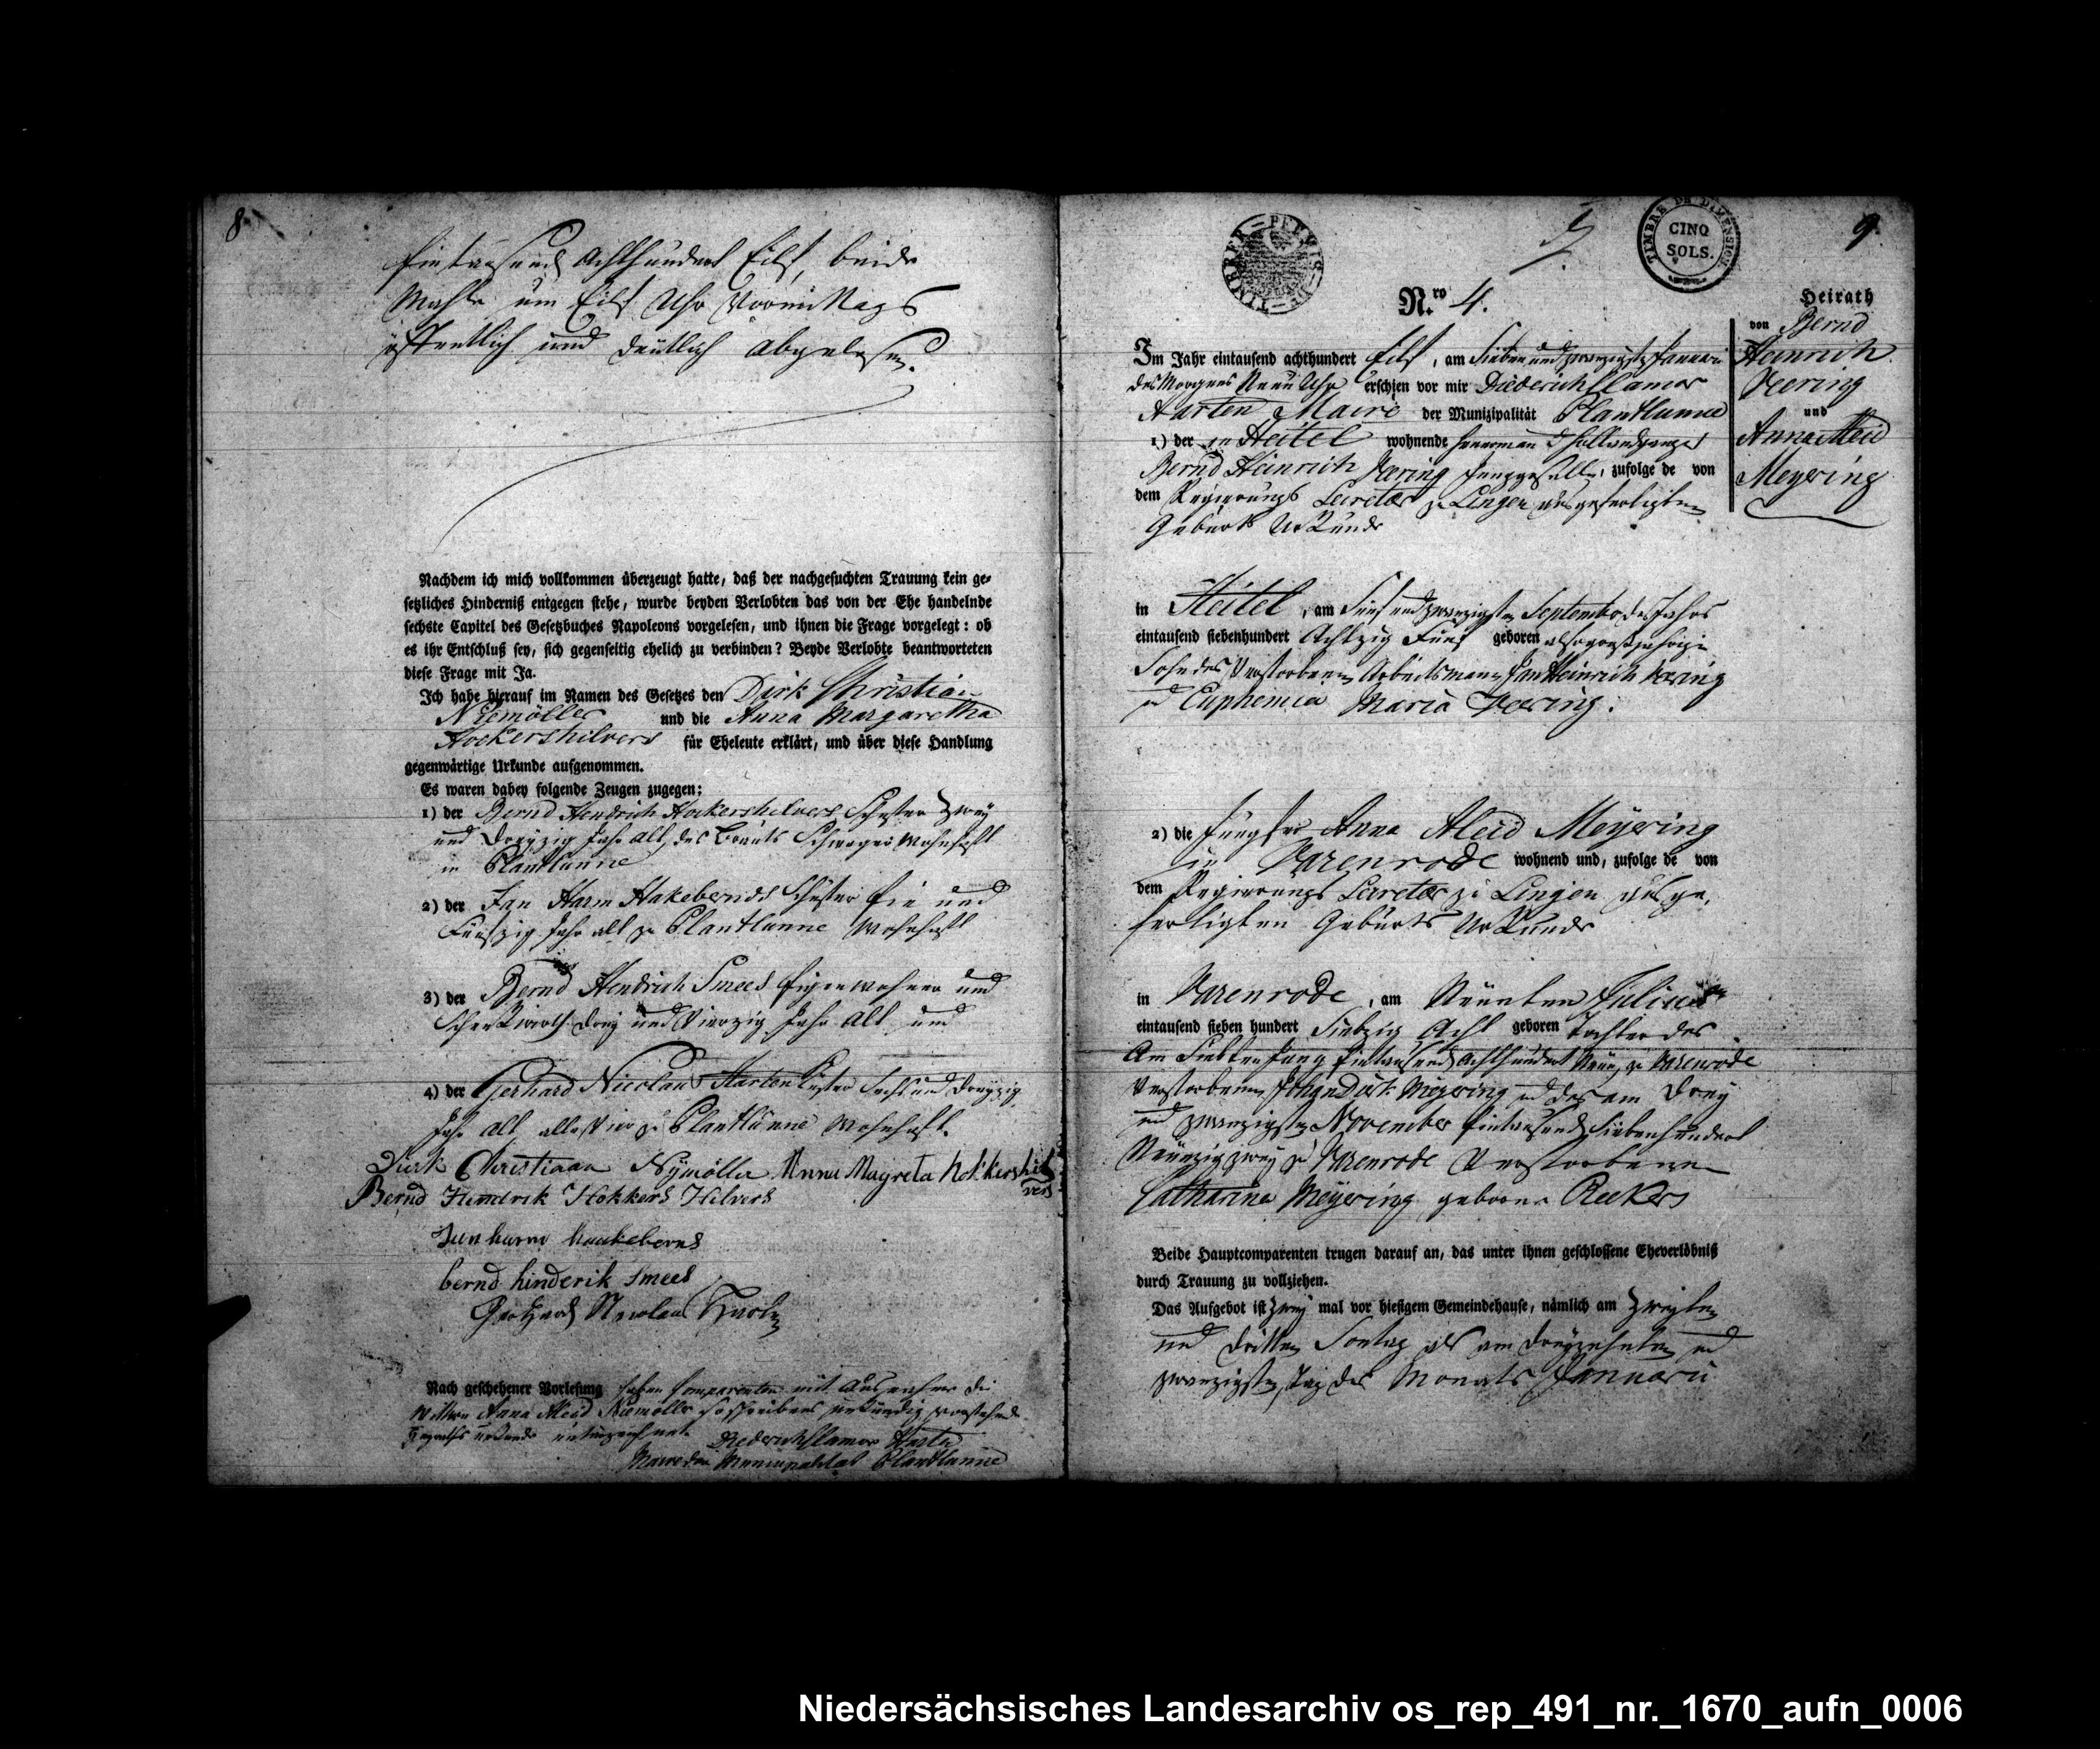 8.
Eintausend Achthundert Eilf, beide
Mahle um Eilf Uhr Vormittags
öffentlich und deutlich abgelesen.
Nachdem ich mich vollkommen überzeugt hatte, daß der nachgesuchten Trauung kein ge-
setzliches Hinderniß entgegen stehe, wurde beyden Verlobten das von der Ehe handelnde
sechste Capitel des Gesetzbuches Napoleons vorgelesen, und ihnen die Frage vorgelegt: ob
es ihr Entschluß sey, sich gegenseitig ehelich zu verbinden? Beyde Verlobte beantworteten
diese Frage mit Ja.
Ich habe hierauf im Namen des Gesetzes den Dirk Christian
Niemöller und die Anna Margaretha
Hockershilvers für Eheleute erklärt, und über diese Handlung
gegenwärtige Urkunde aufgenommen.
Es waren dabey folgende Zeugen zugegen:
1) der Bernd Hendrich Hockershilvers Schuster Zwey
und Dreyzig Jahr alt, des Brauts Schwager wohnhaft
in Plantlunne
2) der Jan Harm Hakebernds Schuster Ein und
Fünfzig Jahr alt zu Plantlunne wohnhaft
3) der Bernd Hendrich Smees Eigenwohner und
drey und Vierzig Jahr alt und
4) der Gerhard Nicolaus Harten Küster Sechs und Dreyzig
Jahr alt alle Vier zu Plantlünne wohnhaft.
Dirk Christiaan Nijmöller Anna Magreta hokkershil
vers
Bernd Hendrik Hokkers Hilvers
Jan harm haakeberns
bernd hinderik Smees
Gerhard Nicolaus Harten
Nach geschehener Vorlesung haben Comparenten mit Ausnahme die
Wittwe Anna Aleid Niemöller schreibens unkundig vorstehende
Heyraths urkunde unterzeichnet. Diederich Slamor Harten
Maire der Municipalitat Plantlunne
9.
TIMBRE DE DIMENSION
CINQ
SOLS.
N.ro 4.
Heirath
von Bernd
Heinrich
Veering
und
Anna Aleid
Meyering
Im Jahr eintausend achthundert Eilf, am Sieben und zwanzigste Januari
des Morgens Neun Uhr erschien vor mir Diederich Slamor
Harten Maire der Munizipalität Plantlunne
1) der in Heitel wohnende
Bernd Heinrich Veering Junggeselle, zufolge de von
dem Regierungs Secretar zu Lingen ausgefertigten
Geburts Urkunde
in Heitel, am Fünf und zwanzigsten September des Jahrs
eintausend siebenhundert Achtzig Fünf geboren also großjährige
Sohn des Verstorbenen Arbeitsmann Jan Heinrich Veering
und Euphemia Maria Veering.
2) die Jungfer Anna Aleid Meyering
in Varenrode wohnend und, zufolge de von
dem Regierungs Secretar zu Lingen ausge,
fertigten Geburts Urkunde
in Varenrode, am Neünten Julius
eintausend sieben hundert Siebzig Acht geboren Tochter des
Am Siebten Juny Eintausend Achthundert Neün zu Varenrode
Verstorbenen Johan Dirk Meyering und des am Drey
und zwanzigsten November Eintausend Siebenhundert
Neunzig zwey zu Varenrode Verstorbenen
Catharina Meyering geborne Reekers
Beide Hauptcomparenten trugen darauf an, das unter ihnen geschlossene Eheverlöbniß
durch Trauung zu vollziehen.
Das Aufgebot ist zwey mal vor hiesigem Gemeindehause, nämlich am Zweyten
und dritten Sontag als am dreyzehnten und
zwanzigsten Tag des Monats Januarii
Niedersächsisches Landesarchiv os_rep_491_nr._1670_aufn_0006